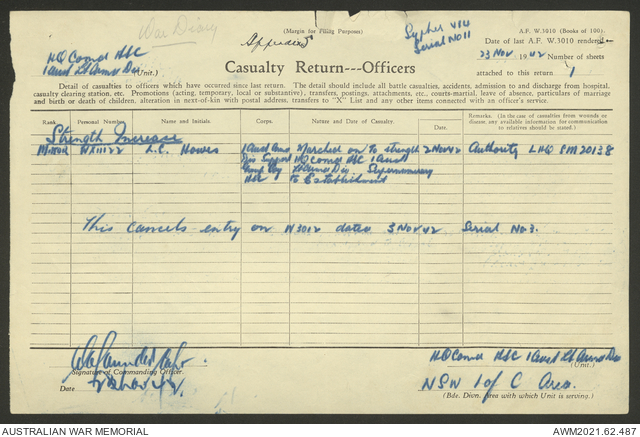 War Diary
(Margin for Filing Purposes)
A.F. W.3010 (Books of 100).
Appendix 5
Sypher 414
Serial No 11
Date of last A.F. W.3010 rendered
HQ Comd
1 Aust Lt Armd Div
(Unit.)
23 Nov 1942 Number of sheets
attached to this return 1
Casualty Return---Officers
Detail of casualties to officers which have occurred since last return. The detail should include all battle casualties, accidents, admission to and discharge from hospital,
casualty clearing station, etc. Promotions (acting, temporary, local or substantive), transfers, postings, attachments, etc., courts-martial, leave of absence, particulars of marriage
and birth or death of children, alteration in next-of-kin with postal address, transfers to "X" List and any other items connected with an officer's service.
Rank Personal Number Name and Initials Corps. Nature and Date of Casualty. Date of Casualty. Remarks. (In the case of casualties from wounds or disease any available information for communication to relatives should be stated.)
Strength Increase
Major L.C. Howes 1 Aust Armd Marched on to strength 2 Nov 42 Authority LHQ SM 20138
Div Support HQ Comd 1 Aust
Group Coy Lt Armd Div Supernumerary
to Establishment
This cancels entry on W3012 dated 3 Nov 42 Serial No 3.
Signature of Commanding Officer.
Date
HQ Comd 1 Aust Lt Armd Div
(Unit.)
NSW L of C Area.
(Bde. Divn. Area with which Unit is serving.)
AUSTRALIAN WAR MEMORIAL
AWM2021.62.487